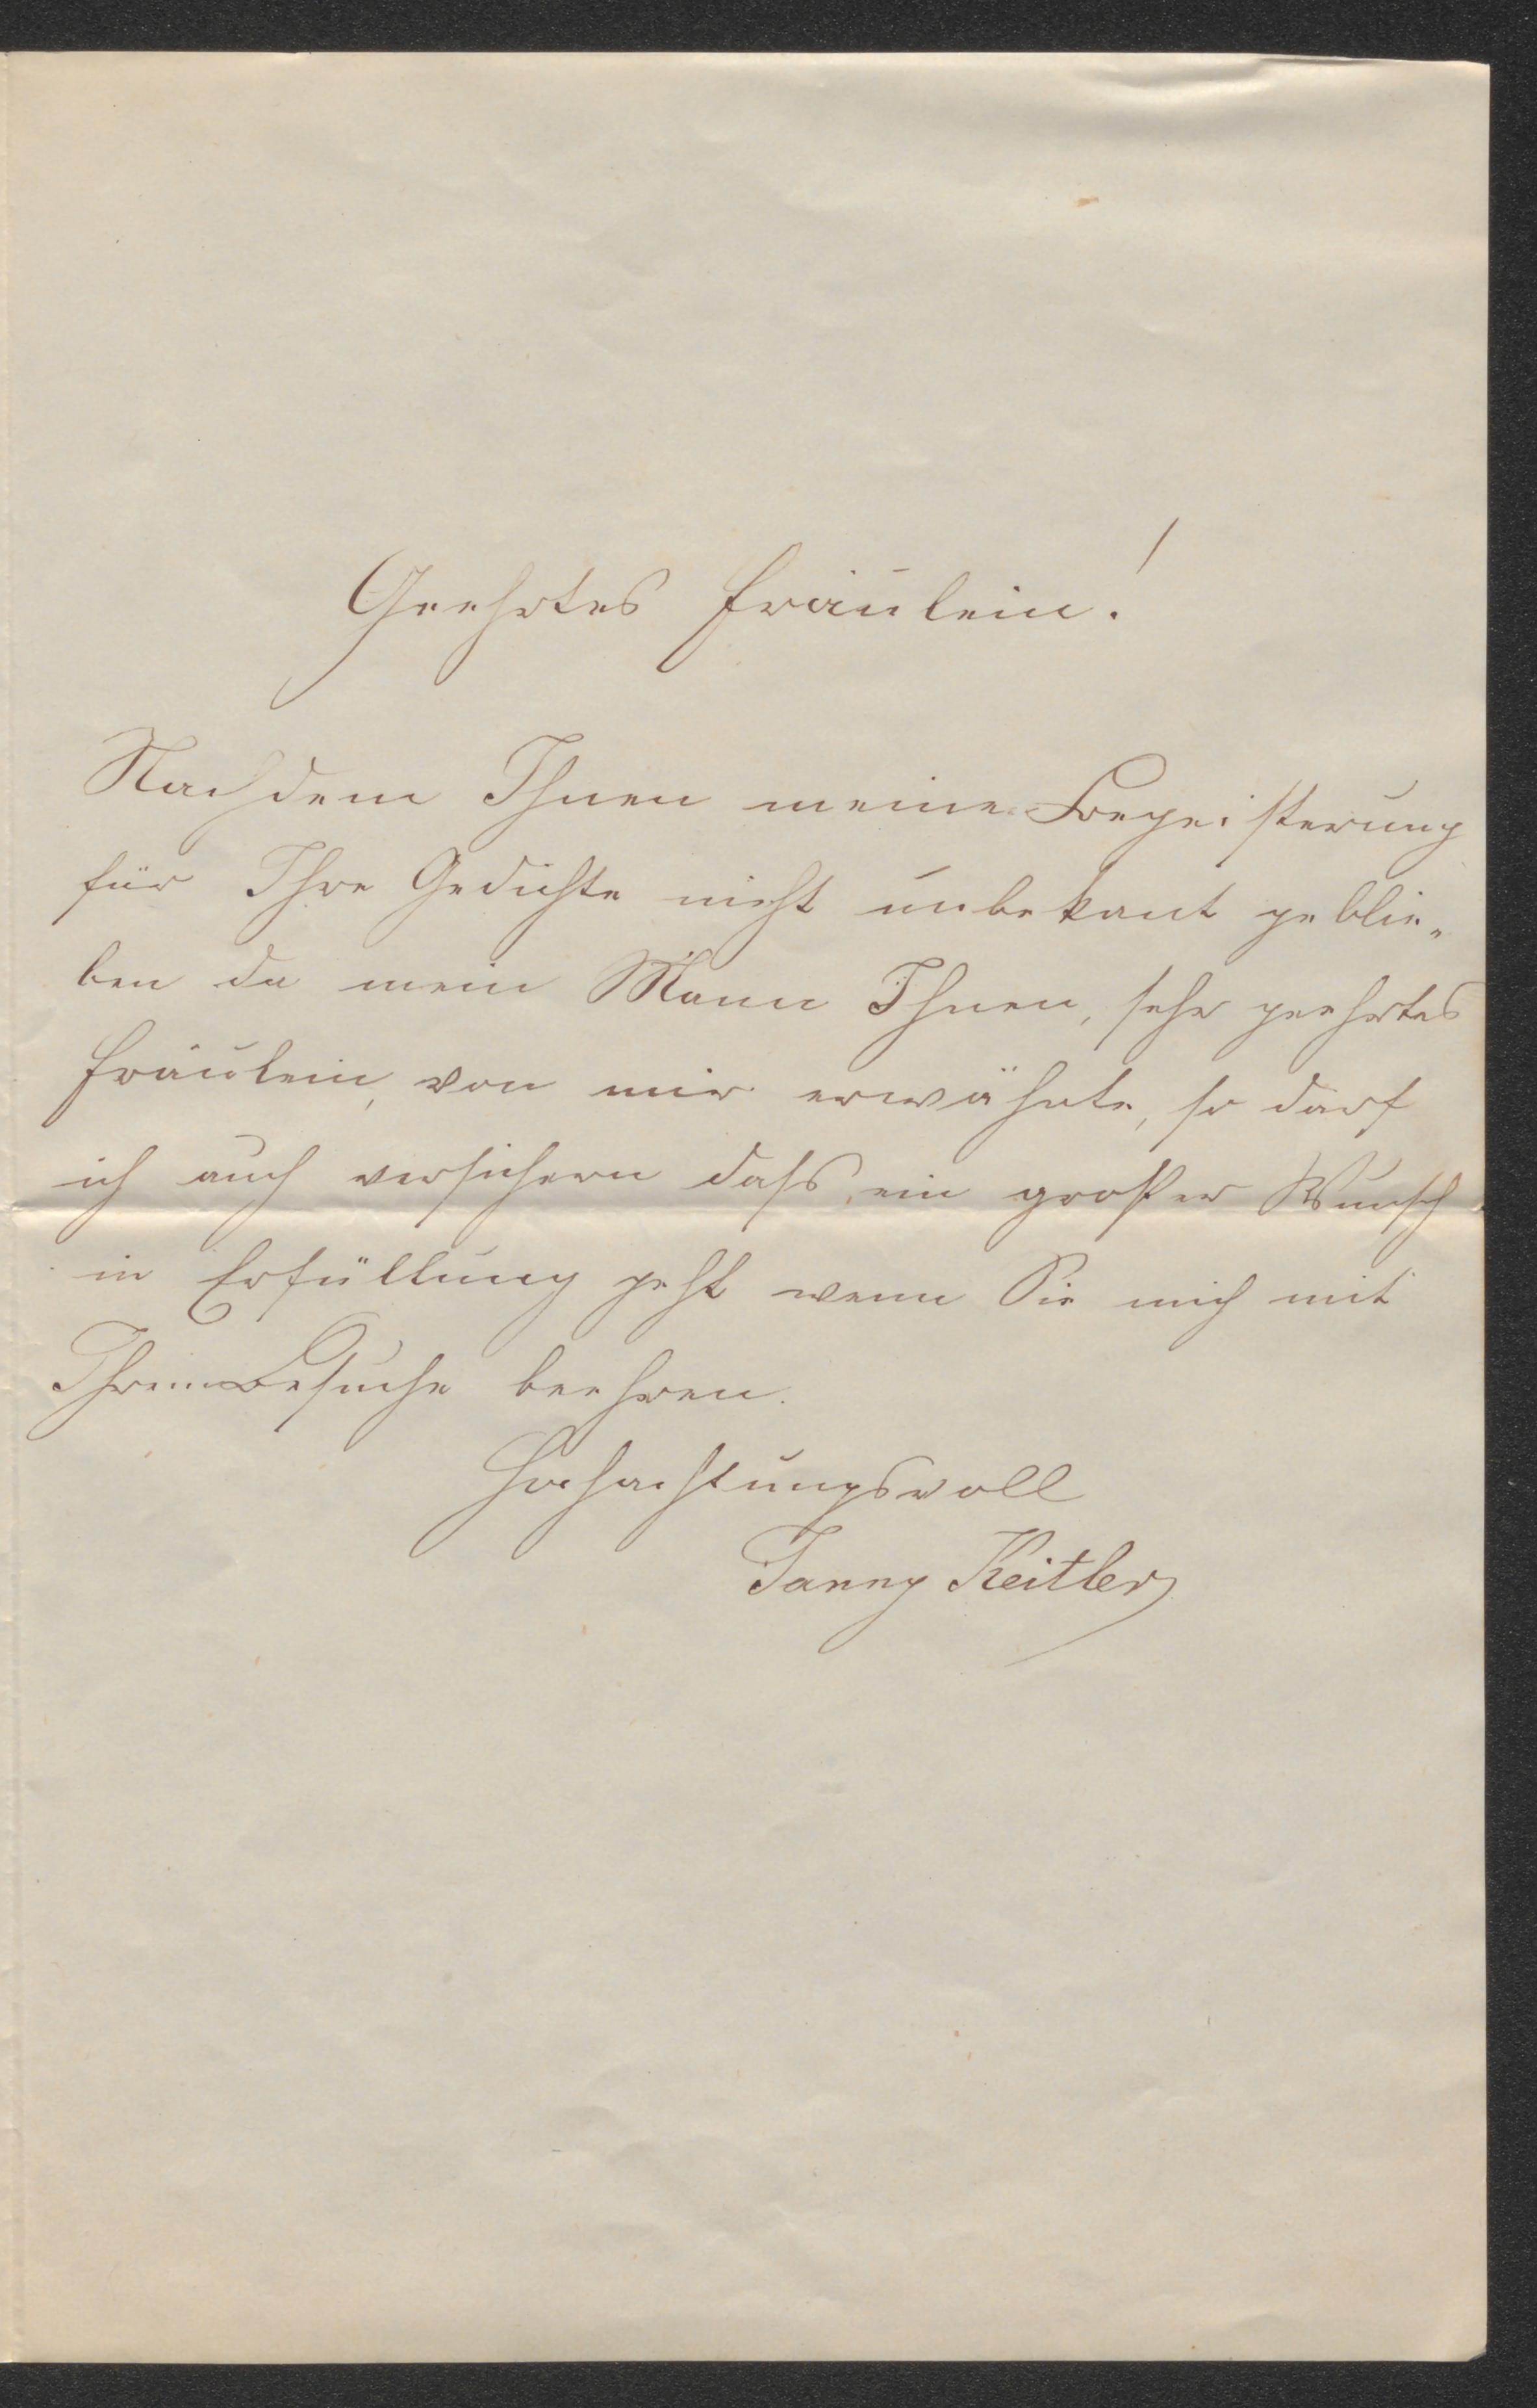 Geehrtes Fräulein!
Nachdem Ihnen meine Begeisterung
für Ihre Gedichte nicht unbekant geblie„
ben da mein Mann Ihnen, sehr geehrtes
Fräulein, von mir erwähnte, so darf
ich auch versichern daß, ein großer Wunsch
in Erfüllung geht wenn Sie mich mit
Ihrem Besuche beehren.
Hochachtungsvoll
Fanny Keitler